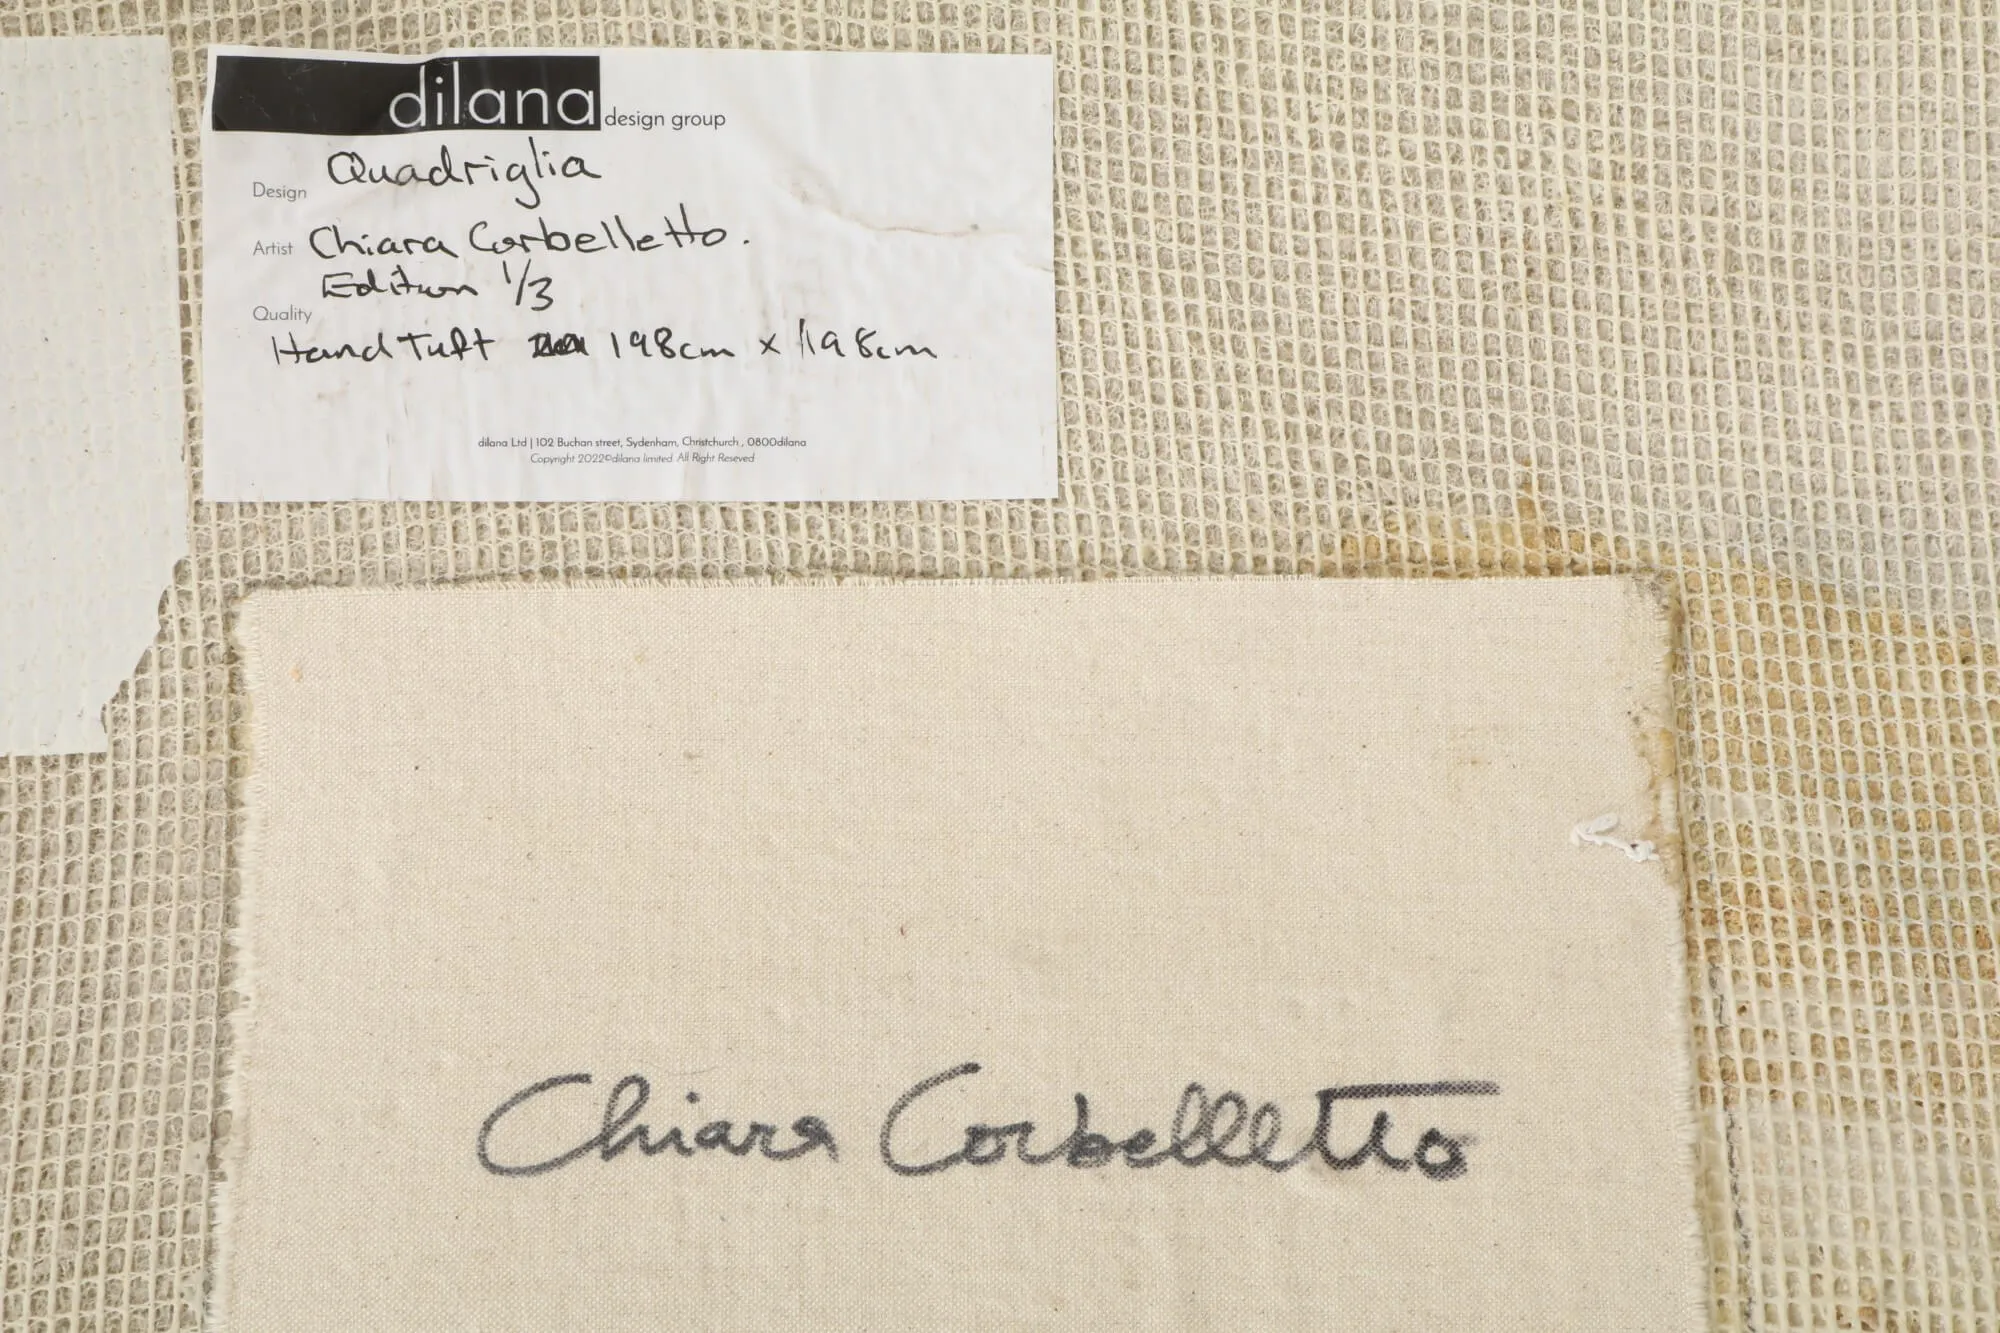 dilana design group
Design Quadriglia
Artist Chiara Corbelletto.
Edition 1/3
Quality
Hand Tuft 198cm x 198cm
dilana Ltd | 102 Buchan street, Sydenham, Christchurch, 0800dilana
Copyright 2022©dilana limited. All Right Reseved
Chiara Corbelletto